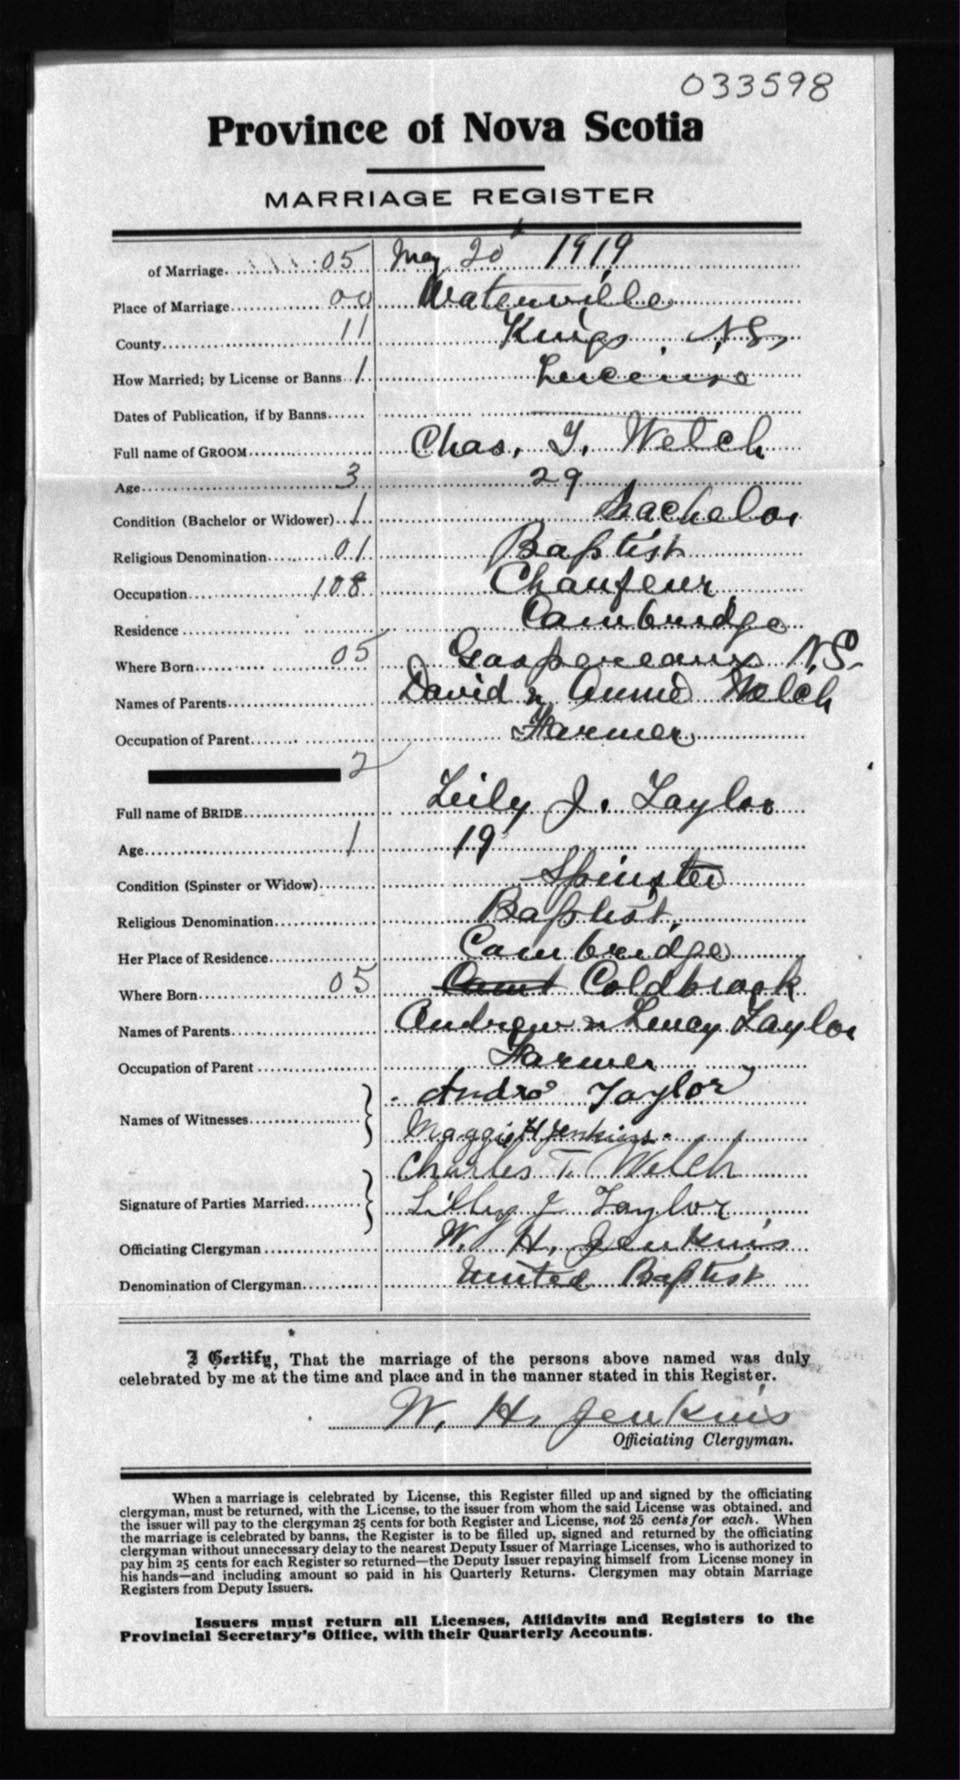 033598
Province of Nova Scotia
MARRIAGE REGISTER
of Marriage 05 May 20 1919
Place of Marriage 00 Waterville
County 11 Kings, N.S.,
How Married; by License or Banns 1 License
Dates of Publication, if by Banns
Full name of GROOM Chas. T. Welch
Age 3 29
Condition (Bachelor or Widower) 1 Bachelor
Religious Denomination 01 Baptist
Occupation 108 Chaufeur
Residence Cambridge
Where Born 05 Gaspereaux N.S.
Names of Parents David & Annie Welch
Occupation of Parent Farmer
2
Full name of BRIDE Leily J. Taylor
Age 1 19
Condition (Spinster or Widow) Spinster
Religious Denomination Baptist,
Her Place of Residence Cambridge
Where Born 05 Coldbrook
Names of Parents Andrew & Lucy Taylor
Occupation of Parent Farmer
Names of Witnesses Andrew Taylor
Maggie H Jenkins.
Signature of Parties Married Charles T. Welch
Lilley J Taylor
Officiating Clergyman W. H. Jenkins
Denomination of Clergyman United Baptist
I Certify, That the marriage of the persons above named was duly
celebrated by me at the time and place and in the manner stated in this Register.
W. H. Jenkins
Officiating Clergyman.
When a marriage is celebrated by License, this Register filled up and signed by the officiating
clergyman, must be returned, with the License, to the issuer from whom the said License was obtained, and
the issuer will pay to the clergyman 25 cents for both Register and License, not 25 cents for each. When
the marriage is celebrated by banns, the Register is to be filled up, signed and returned by the officiating
clergyman without unnecessary delay to the nearest Deputy Issuer of Marriage Licenses, who is authorized to
pay him 25 cents for each Register so returned—the Deputy Issuer repaying himself from License money in
his hands—and including amount so paid in his Quarterly Returns. Clergymen may obtain Marriage
Registers from Deputy Issuers.
Issuers must return all Licenses, Affidavits and Registers to the
Provincial Secretary's Office, with their Quarterly Accounts.